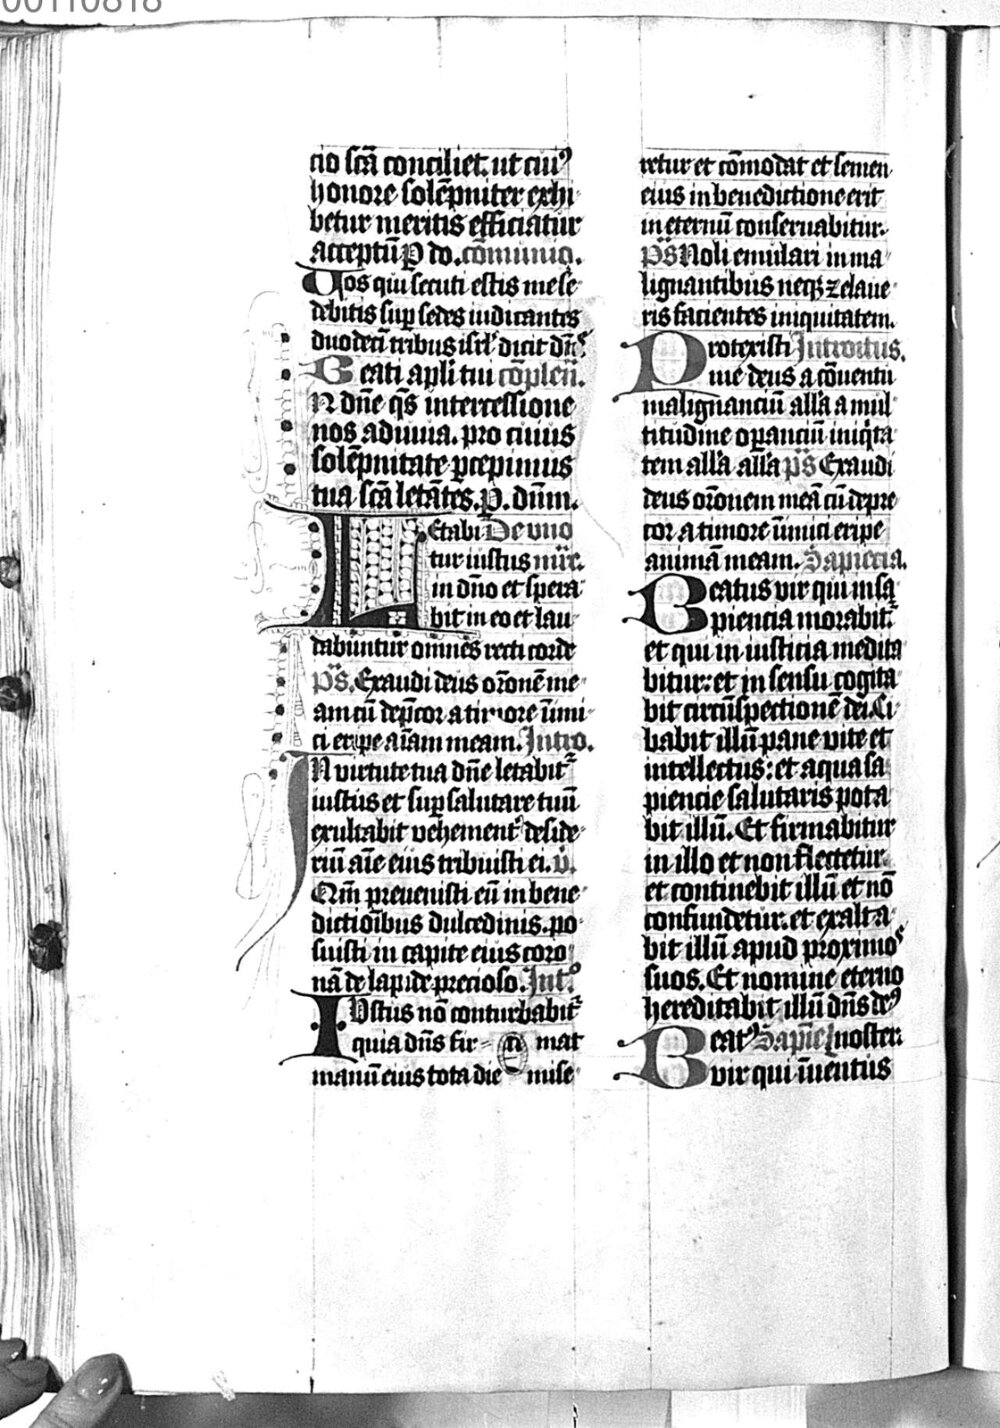 00110818
cio scā conciliet. ut cui⁹
honore solēpniter exhi
betur meritis efficiatur
acceptū P do. cōmunio.
Vos qui secuti estis me se
debitis sup sedes iudicantes
duodeci tribus isrł dicit dn̄s
Beati apl̄i tui cōpleñ.
N dn̄e q̄s intercessione
nos adiuua. pro cuius
solēpnitate p̄cepimus
tua scā letātes. P. dūm.
Letabi De uno
tur iustus mr̄e.
in dn̄o et spera
bit in eo et lau
dabuntur omnes recti corde
p̄s. Exaudi deus or̄onē me
am cū dep̄cor a timore inimi
ci eripe aīam meam. Intro.
IN virtute tua dn̄e letabit̄
iustus et sup salutare tuū
exultabit vehement̄ deside
riū aīe eius tribuisti ei. v̄.
Qm̄ preuenisti eū in bene
dictiōibus dulcedinis. po
suisti in capite eius coro
nā de lapide precioso. Int°
IUstus nō conturbabit̄
quia dn̄s fir mat
manū eius tota die mise
retur et cōmodat et semen
eius in benedictione erit
in eternū conseruabitur.
p̄s Noli emulari in ma
lignantibus neq; zelaue
ris facientes iniquitatem.
Protexisti Introitus.
me deus a cōuentu
malignanciū all'a a mul
titudine op̄anciū iniq̄ta
tem all'a all'a p̄s Exaudi
deus or̄onem meā cū depre
cor a timore īimici eripe
animā meam. Sapiēcia.
Beatus vir qui in sa
piencia morabit̄
et qui in iusticia medita
bitur: et in sensu cogita
bit circūspectionē dei. Ci
babit illū pane vite et
intellectus: et aqua sa
piencie salutaris pota
bit illū. Et firmabitur
in illo et non flectetur
et continebit illū et nō
confundetur. et exalta
bit illū apud proximos
suos. Et nomine eterno
hereditabit illū dn̄s de⁹
Beat⁹ Sapīe noster.
vir qui īuentus